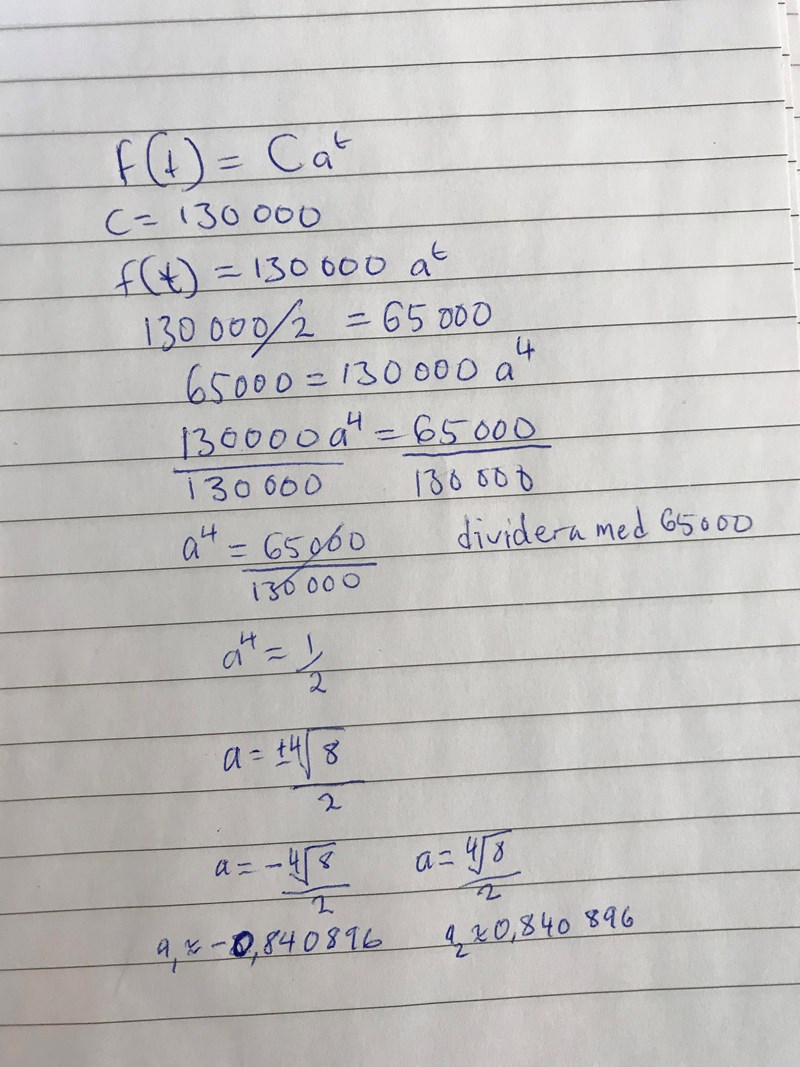 f(t) = Ca^t
C = 130 000
f(t) = 130 000 a^t
130 000/2 = 65 000
65000 = 130 000 a^4
130000a^4/130 000 = 65 000/130 000
a^4 = 65000/130 000 dividera med 65000
a^4 = 1/2
a = ±∜8/2
a = -∜8/2 a = ∜8/2
a₁ ≈ -0,840896 a₂ ≈ 0,840 896